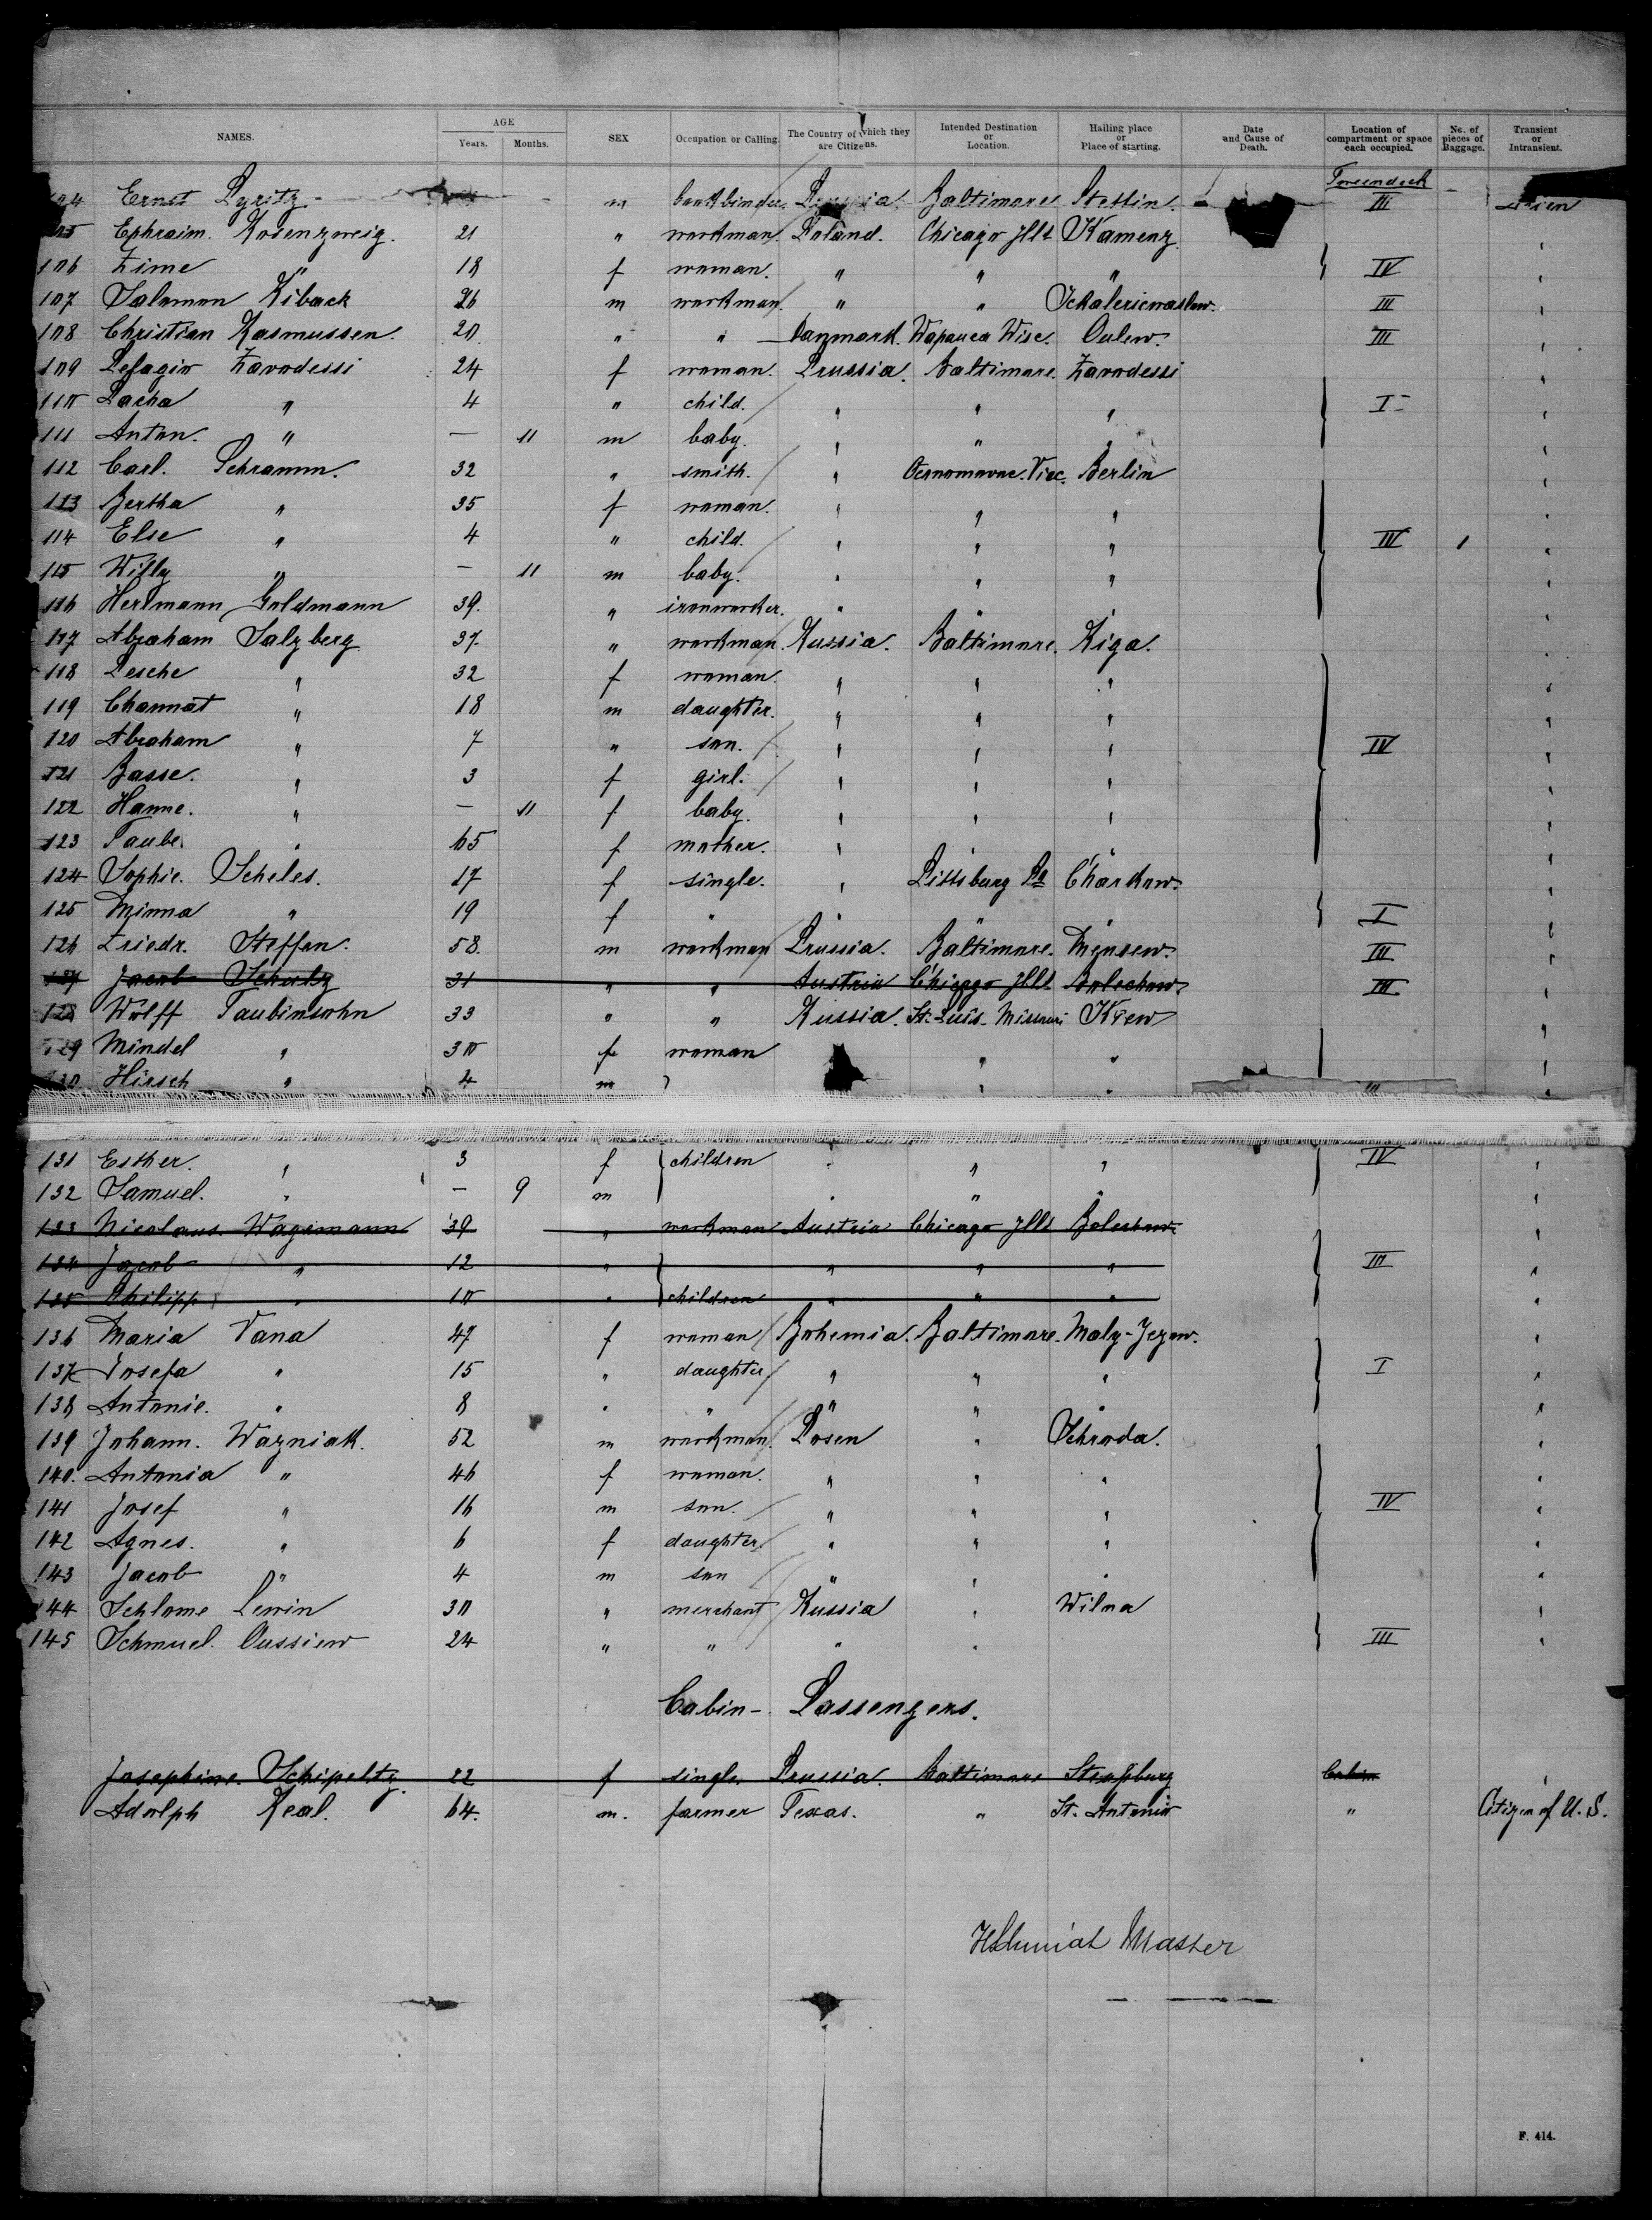 NAMES. AGE Years. Months. SEX Occupation or Calling. The Country of which they are Citizens. Intended Destination or Location. Hailing place or Place of starting. Date and Cause of Death. Location of compartment or space each occupied. No. of pieces of Baggage. Transient or Intransient.
Ernst Pyritz m bookbinder Baltimore Stettin III
Ephraim Rosenzweig. 21 " workman. Poland. Chicago Ills Kamenz
106 Zime " 18 f woman. " " " IV
107 Salomon Kiback 26 m workman " " III
108 Christian Rasmussen. 20. " " Danmark. Wapauca Wisc. Oulew. III
109 Pelagio Zavodessi 24 f woman. Prussia. Baltimore. Zavodessi
110 Lacha " 4 " child. " " " I
111 Anton. " — 11 m baby. " " "
112 Carl. Schramm. 32 " smith. " Berlin
113 Bertha " 35 f woman. " " "
114 Else " 4 " child. " " " IV 1
115 Willy " — 11 m baby. " " "
116 Herlmann Goldmann 39. " ironworker. " " "
117 Abraham Salzberg 37. " workman. Russia. Baltimore. Riga.
118 Pesche " 32 f woman. " " "
119 Channat " 18 m daughter. " " "
120 Abraham " 7 " son. " " " IV
121 Basse. " 3 f girl. " " "
122 Hanne. " — 11 f baby. " " "
123 Taube. " 65 f mother. " " "
124 Sophie. Scheles. 17 f single. " Pittsburg Pa Charkow.
125 Minna " 19 f " " " " I
126 Friedr. Steffen. 58. m workman Prussia. Baltimore. III
127 Jacob Schultz 31 " " Austria Chicago Ills. Bolechow. III
128 Wolff Taubinsohn 33 " " Russia. St. Luis Missouri Kiew
129 Mindel " 30 f woman " "
130 Hirsch " 4 m " " III
131 Esther. " 3 f children " " " IV
132 Samuel. " — 9 m " " "
133 Nicolaus Wagimann 39 " workman Austria Chicago Ills Bolechow.
134 Jacob " 12 " " " " III
135 Philipp " 10 " children " " "
136 Maria Vana 47 f woman Bohemia. Baltimore. Maly-Jezow.
137 Josefa " 15 " daughter " " " I
138 Antonie. " 8 " " " " "
139 Johann. Wozniak. 52 m workman. Posen " Schroda.
140. Antonia " 46 f woman. " " "
141 Josef " 16 m son. " " " IV
142 Agnes. " 6 f daughter. " " "
143 Jacob " 4 m son " " "
144 Schlome Lewin 30 " merchant Russia " Wilna
145 Schmuel. Oussiew 24 " " " " III
Cabin- Passengers.
Josephine. Schipeltz. 22 f single. Prussia. Baltimore Straßburg Cabin
Adolph Real. 64. m. farmer Texas. " St. Antonio " Citizen of U.S.
Master
F. 414.